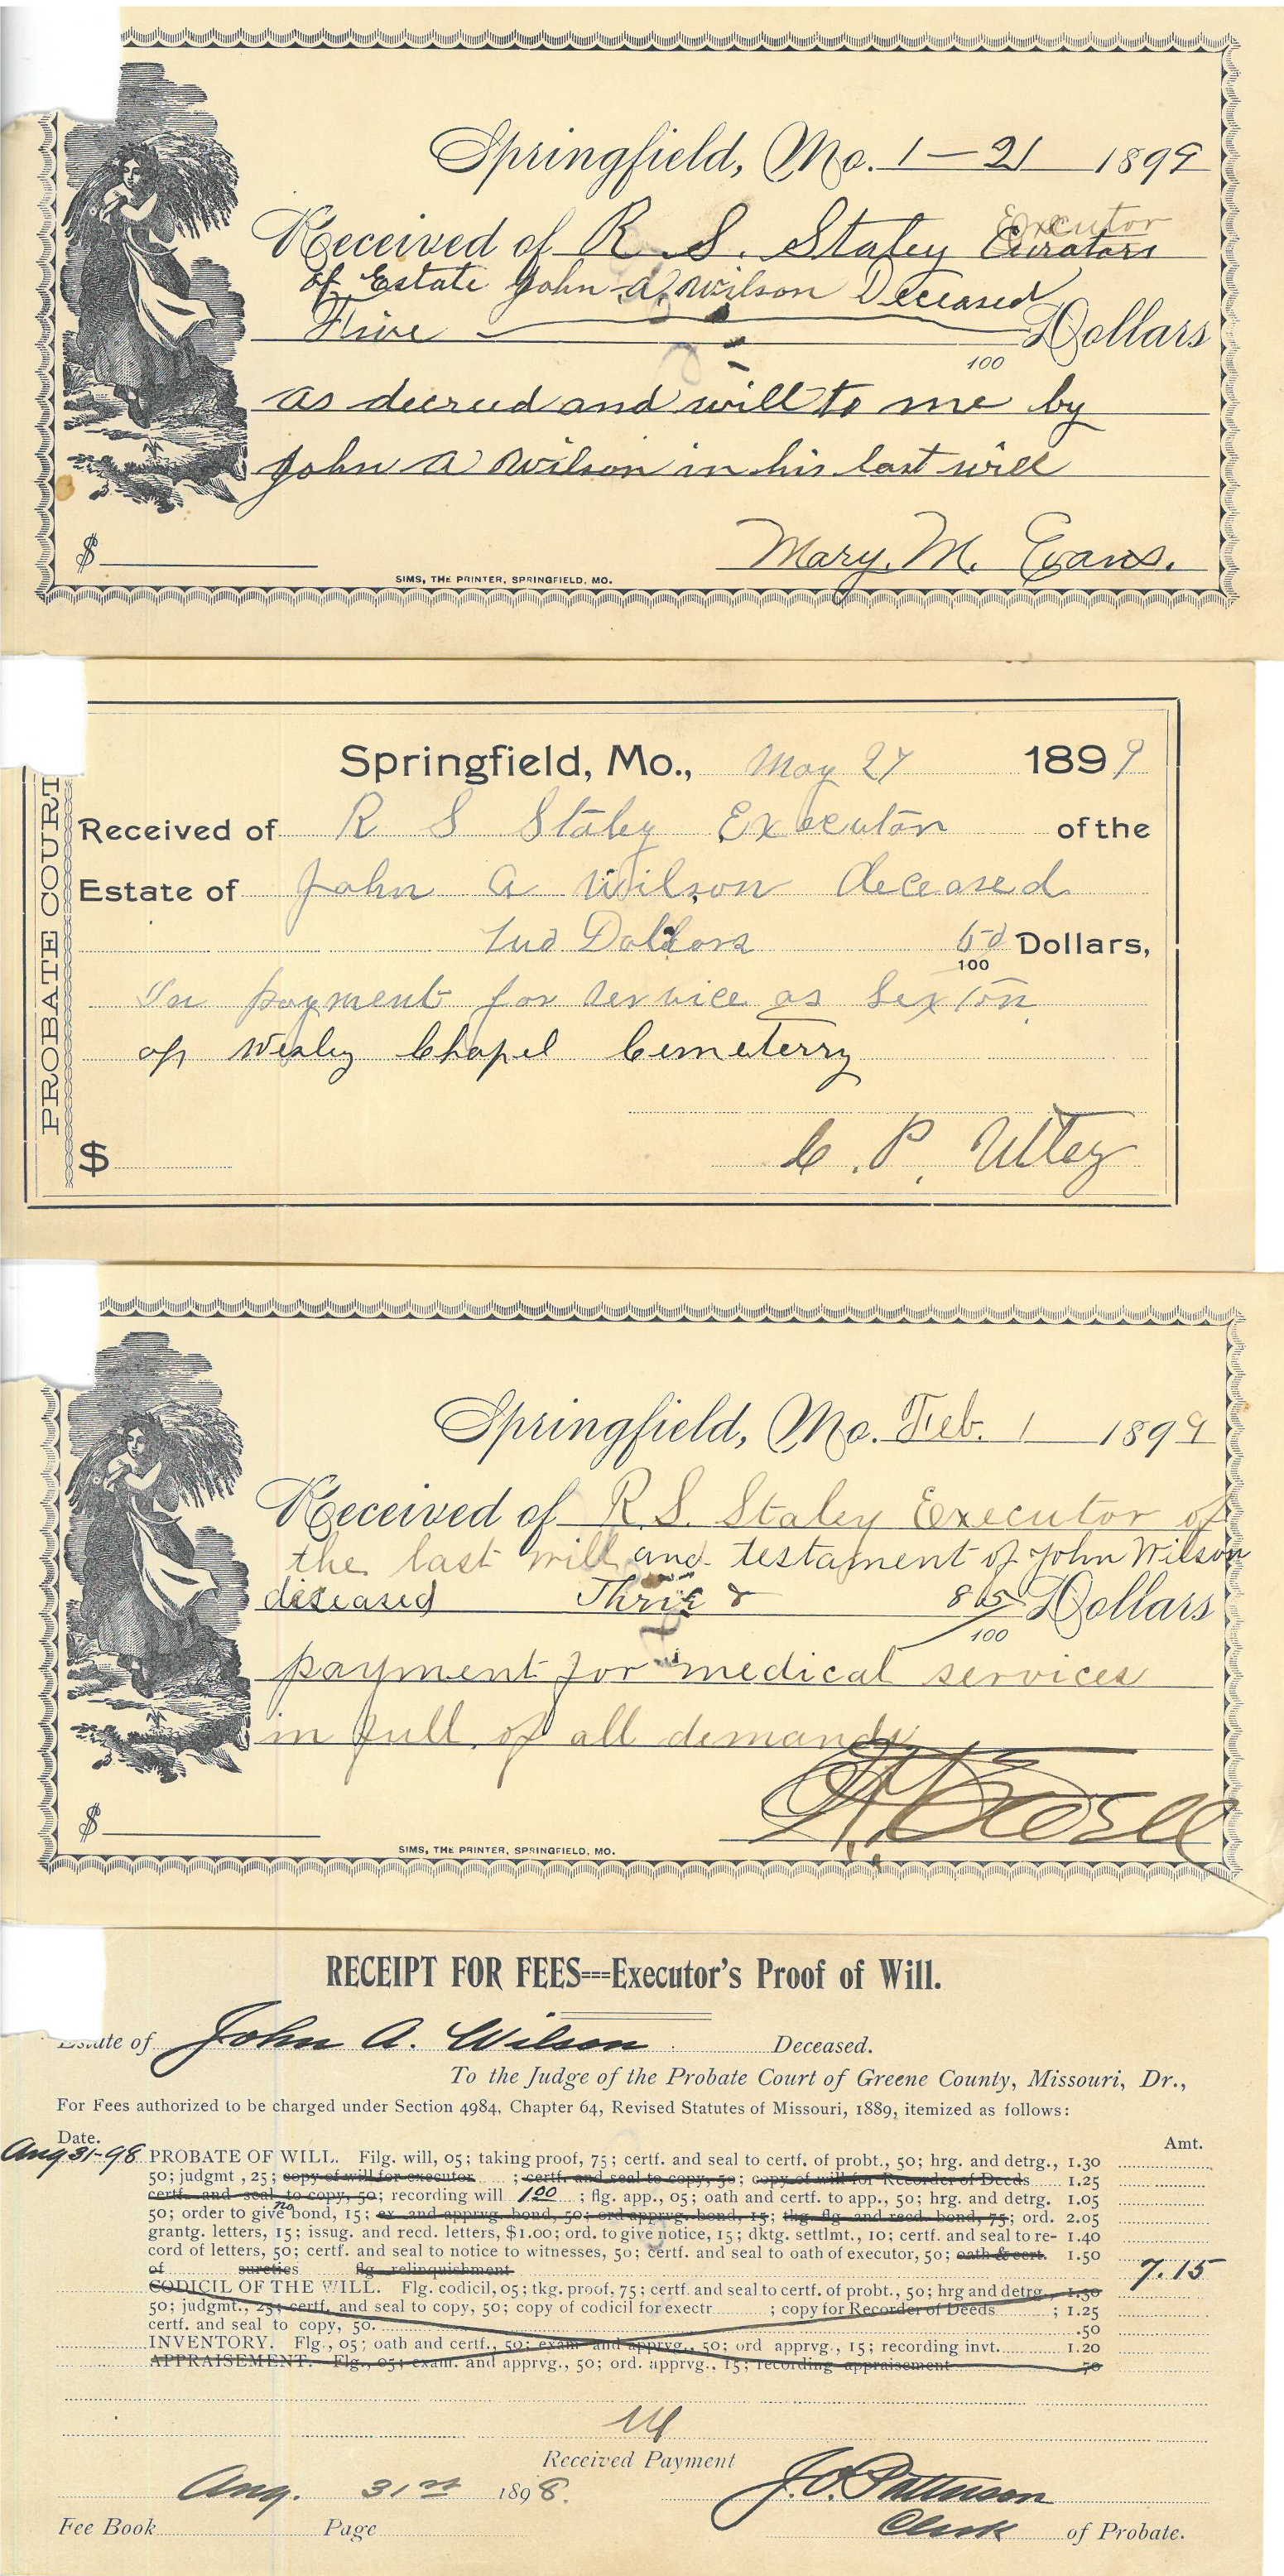 Springfield, Mo. 1-21 1899
Executor
Received of R. S. Staley Curators
of Estate John A Wilson Deceased
Five Dollars
100
as decreed and will to me by
John A Wilson in his last will
$ Mary. M. Evans.
SIMS, THE PRINTER, SPRINGFIELD, MO.
PROBATE COURT
Springfield, Mo., May 27 1899
Received of R S Staley Executor of the
Estate of John A Wilson deceased
Two Dollars 50 Dollars,
100
In payment for service as Sexton
of Wesley Chapel Cemeterry
$ C. P. Utley
Springfield, Mo. Feb. 1 1899
Received of R.S. Staley Executor of
the last will and testament of John Wilson
diseased Three & 85 Dollars
100
payment for medical services
in full of all demands
$
SIMS, THE PRINTER, SPRINGFIELD, MO.
RECEIPT FOR FEES---Executor's Proof of Will.
Estate of John A. Wilson Deceased.
To the Judge of the Probate Court of Greene County, Missouri, Dr.,
For Fees authorized to be charged under Section 4984, Chapter 64, Revised Statutes of Missouri, 1889, itemized as follows:
Date. Amt.
Aug 31-98 PROBATE OF WILL. Filg. will, 05; taking proof, 75; certf. and seal to certf. of probt., 50; hrg. and detrg., 1.30
50; judgmt, 25; copy of will for executor ; certf. and seal to copy, 50; copy of will for Recorder of Deeds 1.25
certf. and seal to copy, 50; recording will 1.00 ; flg. app., 05; oath and certf. to app., 50; hrg. and detrg. 1.05
no
50; order to give bond, 15; ex. and apprvg. bond, 50; ord apprvg. bond, 15; tkg. flg and recd. bond, 75; ord. 2.05
grantg. letters, 15; issug. and recd. letters, $1.00; ord. to give notice, 15; dktg. settlmt., 10; certf. and seal to re- 1.40
cord of letters, 50; certf. and seal to notice to witnesses, 50; certf. and seal to oath of executor, 50; oath & cert. 1.50
of sureties flg. relinquishment 7.15
CODICIL OF THE WILL. Flg. codicil, 05; tkg. proof, 75; certf. and seal to certf. of probt., 50; hrg and detrg., 1.30
50; judgmt., 25; certf. and seal to copy, 50; copy of codicil for exectr ; copy for Recorder of Deeds ; 1.25
certf. and seal to copy, 50. .50
INVENTORY. Flg., 05; oath and certf., 50; exam and apprvg., 50; ord apprvg., 15; recording invt. 1.20
APPRAISEMENT. Flg., 05; exam. and apprvg., 50; ord. apprvg., 15; recording appraisement 70
Received Payment
Aug. 31st 1898. J. O. Patterson
Fee Book Page Clerk of Probate.